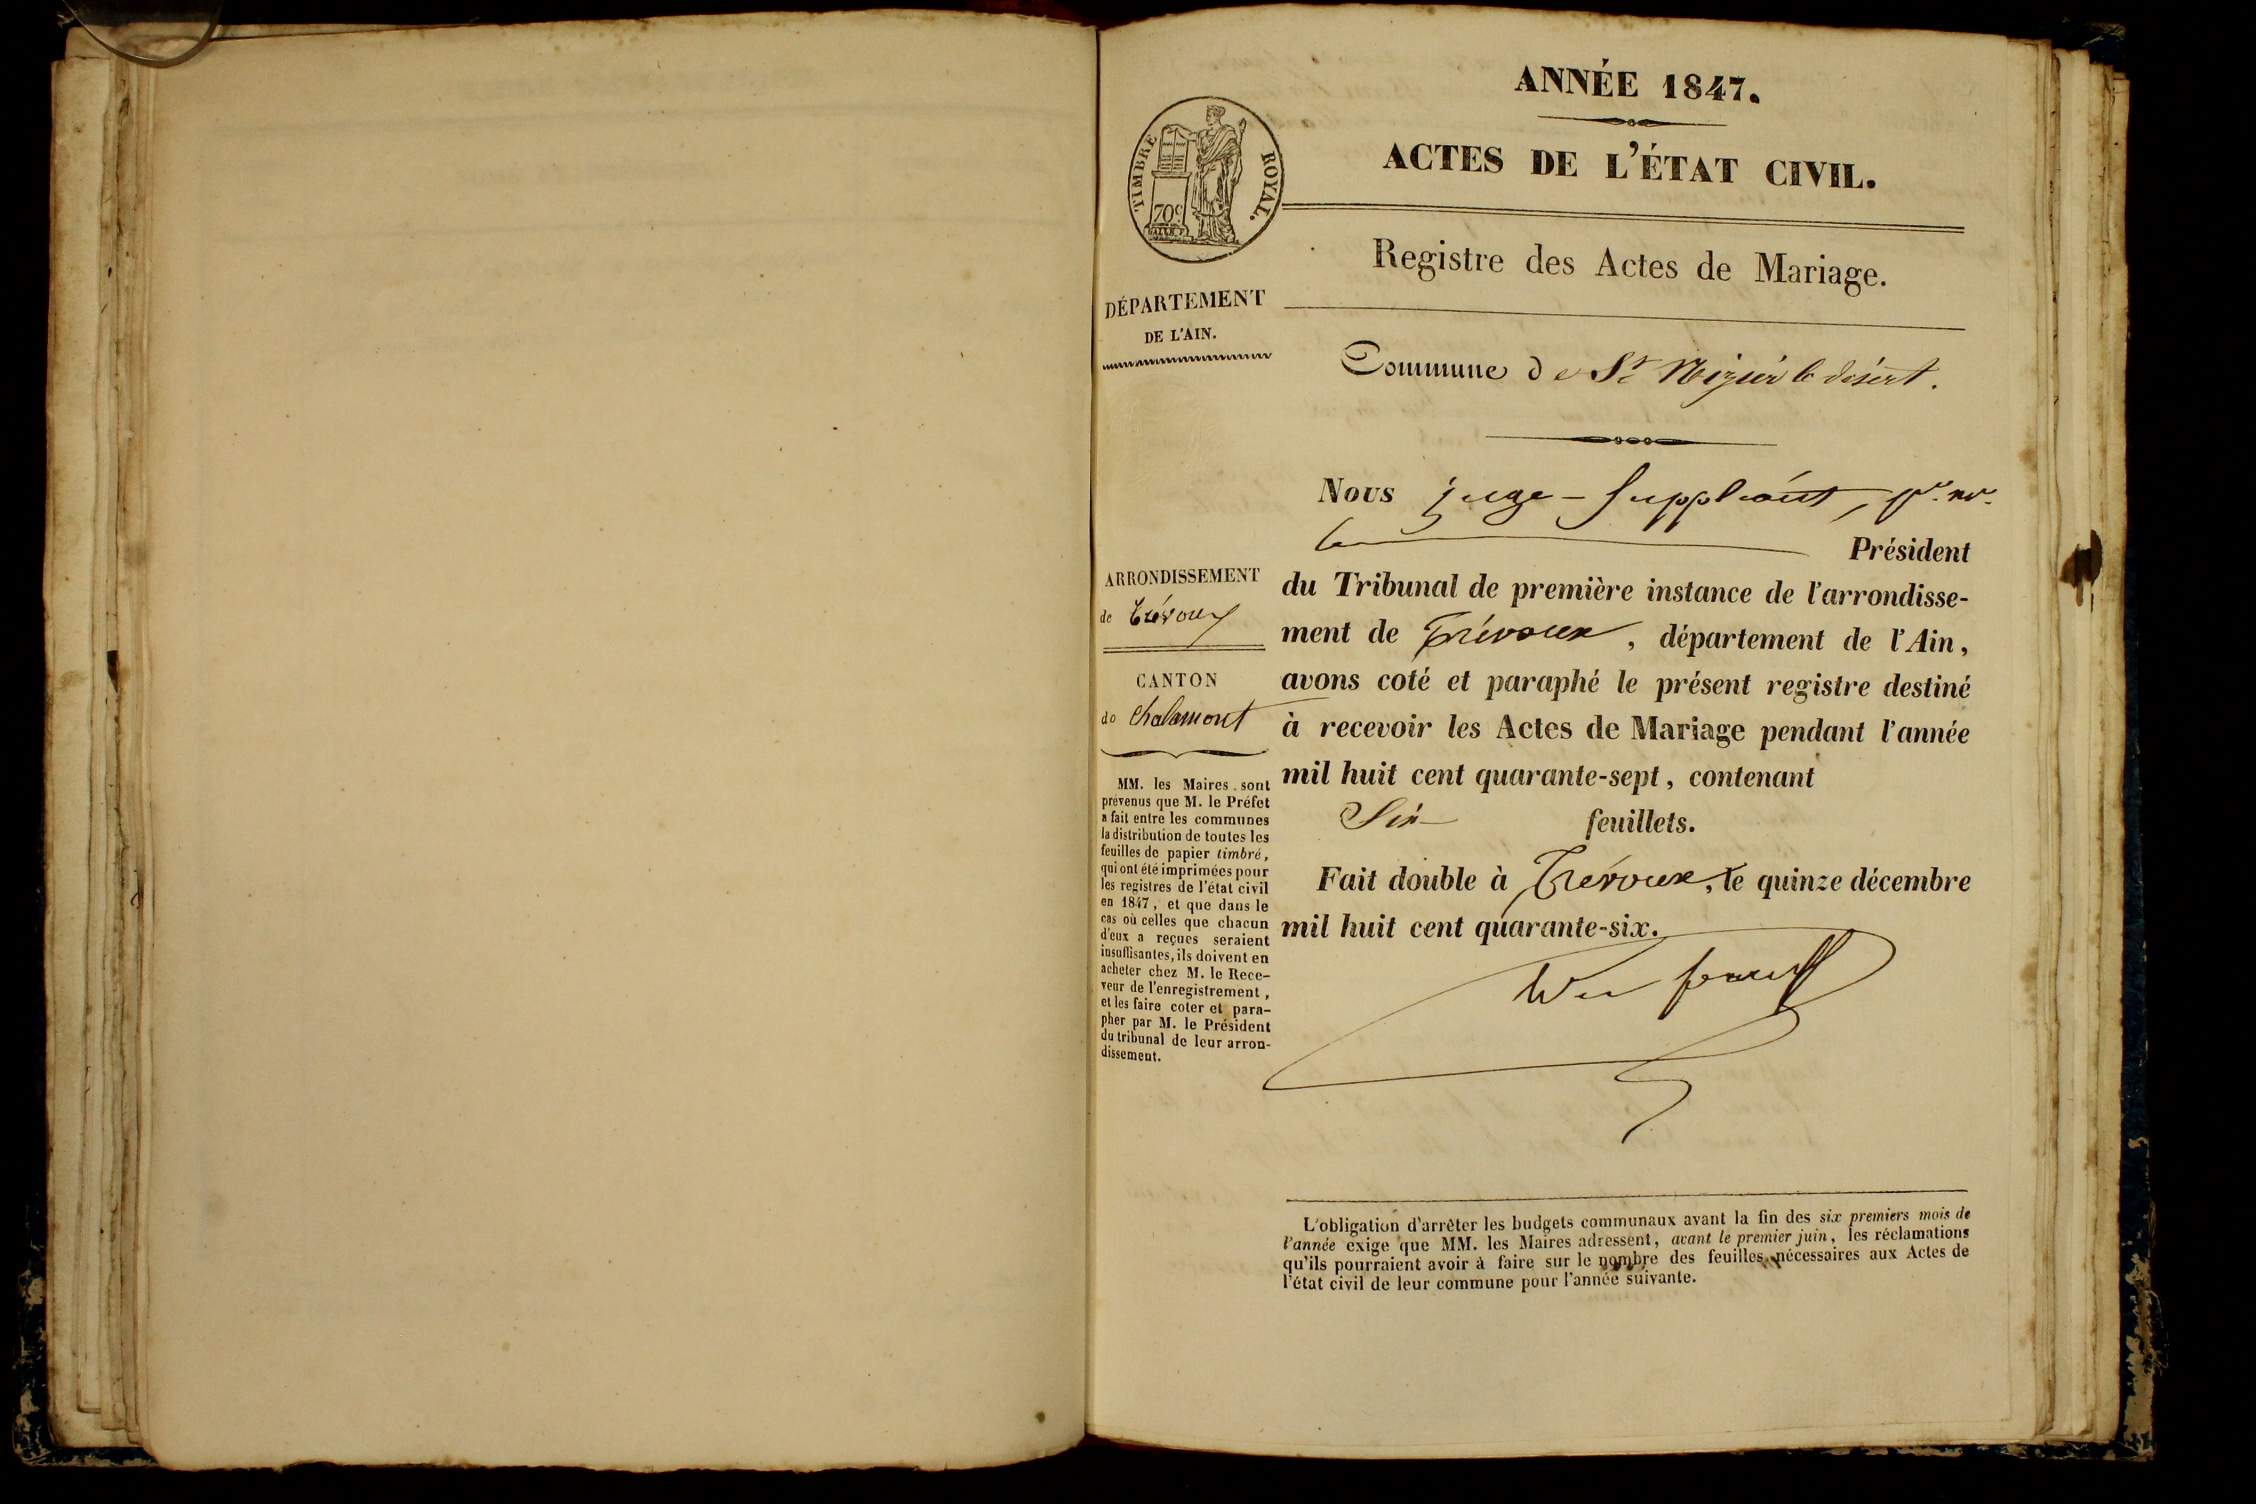 ANNÉE 1847.
ACTES DE L'ÉTAT CIVIL.
TIMBRE ROYAL.
70c
Registre des Actes de Mariage.
DÉPARTEMENT
DE L'AIN.
Commune de St Nizier le désert.
Nous juge-suppléant, pr. mr.
le Président
du Tribunal de première instance de l'arrondisse-
ment de Trévoux, département de l'Ain,
avons coté et paraphé le présent registre destiné
à recevoir les Actes de Mariage pendant l'année
mil huit cent quarante-sept, contenant
Six feuillets.
Fait double à Trévoux, le quinze décembre
mil huit cent quarante-six.
ARRONDISSEMENT
de Trévoux
CANTON
de Chalamont
MM. les Maires sont
prévenus que M. le Préfet
a fait entre les communes
la distribution de toutes les
feuilles de papier timbré,
qui ont été imprimées pour
les registres de l'état civil
en 1847, et que dans le
cas où celles que chacun
d'eux a reçues seraient
insuffisantes, ils doivent en
acheter chez M. le Rece-
veur de l'enregistrement,
et les faire coter et para-
pher par M. le Président
du tribunal de leur arron-
dissement.
L'obligation d'arrêter les budgets communaux avant la fin des six premiers mois de
l'année exige que MM. les Maires adressent, avant le premier juin, les réclamations
qu'ils pourraient avoir à faire sur le nombre des feuilles nécessaires aux Actes de
l'état civil de leur commune pour l'année suivante.